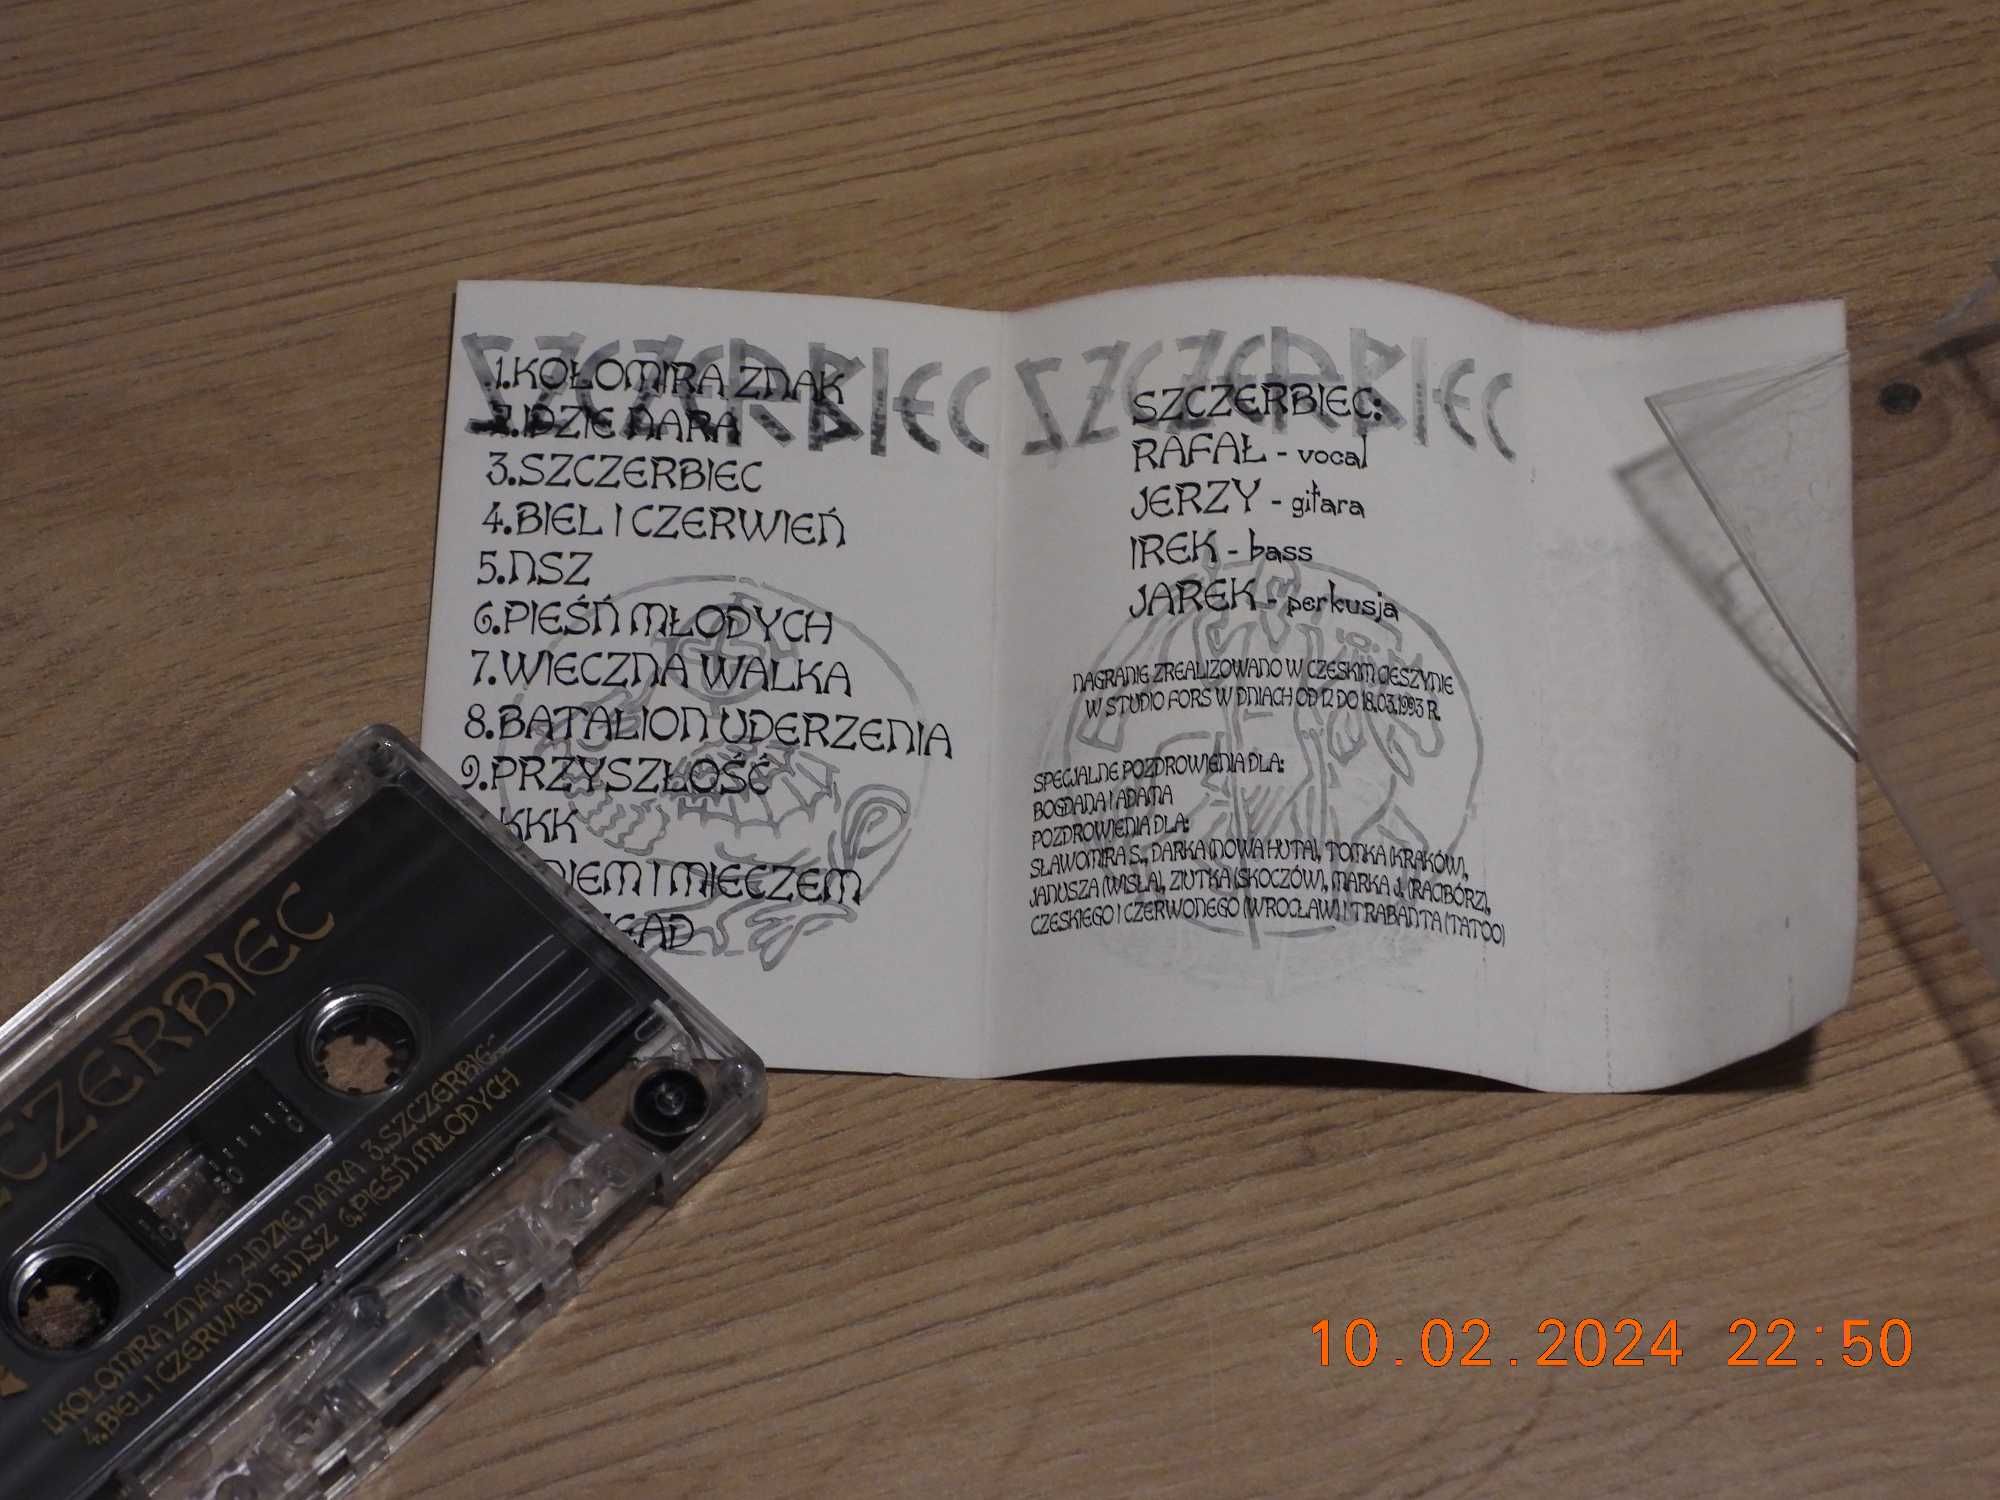 SZCZERBIEC
1.KOŁOMIRA ZNAK
2.IDZIE NARA
3.SZCZERBIEC
4.BIEL I CZERWIEŃ
5.NSZ
6.PIEŚŃ MŁODYCH
7.WIECZNA WALKA
8.BATALION UDERZENIA
9.PRZYSZŁOŚĆ
KKK
NIEM I MIECZEM
EAD
SZCZERBIEC
SZCZERBIEC:
RAFAŁ - vocal
JERZY - gitara
IREK - bass
JAREK - perkusja
NAGRANIE ZREALIZOWANO W CZESKIM CIESZYNIE
W STUDIO FORS W DNIACH OD 12 DO 18.03.1993 R.
SPECJALNE POZDROWIENIA DLA:
BOGDANA I ADAMA
POZDROWIENIA DLA:
SŁAWOMIRA S., DARKA (NOWA HUTA), TOMKA (KRAKÓW),
JANUSZA (WISŁA), ZIUTKA (SKOCZÓW), MARKA J. (RACIBÓRZ),
CZESKIEGO I CZERWONEGO (WROCŁAW) I TRABANTA (TATOO)
CZERBIEC
100 50 0
1.KOŁOMIRA ZNAK 2.IDZIE NARA 3.SZCZERBIEC
4.BIEL I CZERWIEŃ 5.NSZ 6.PIEŚŃ MŁODYCH
10.02.2024 22:50